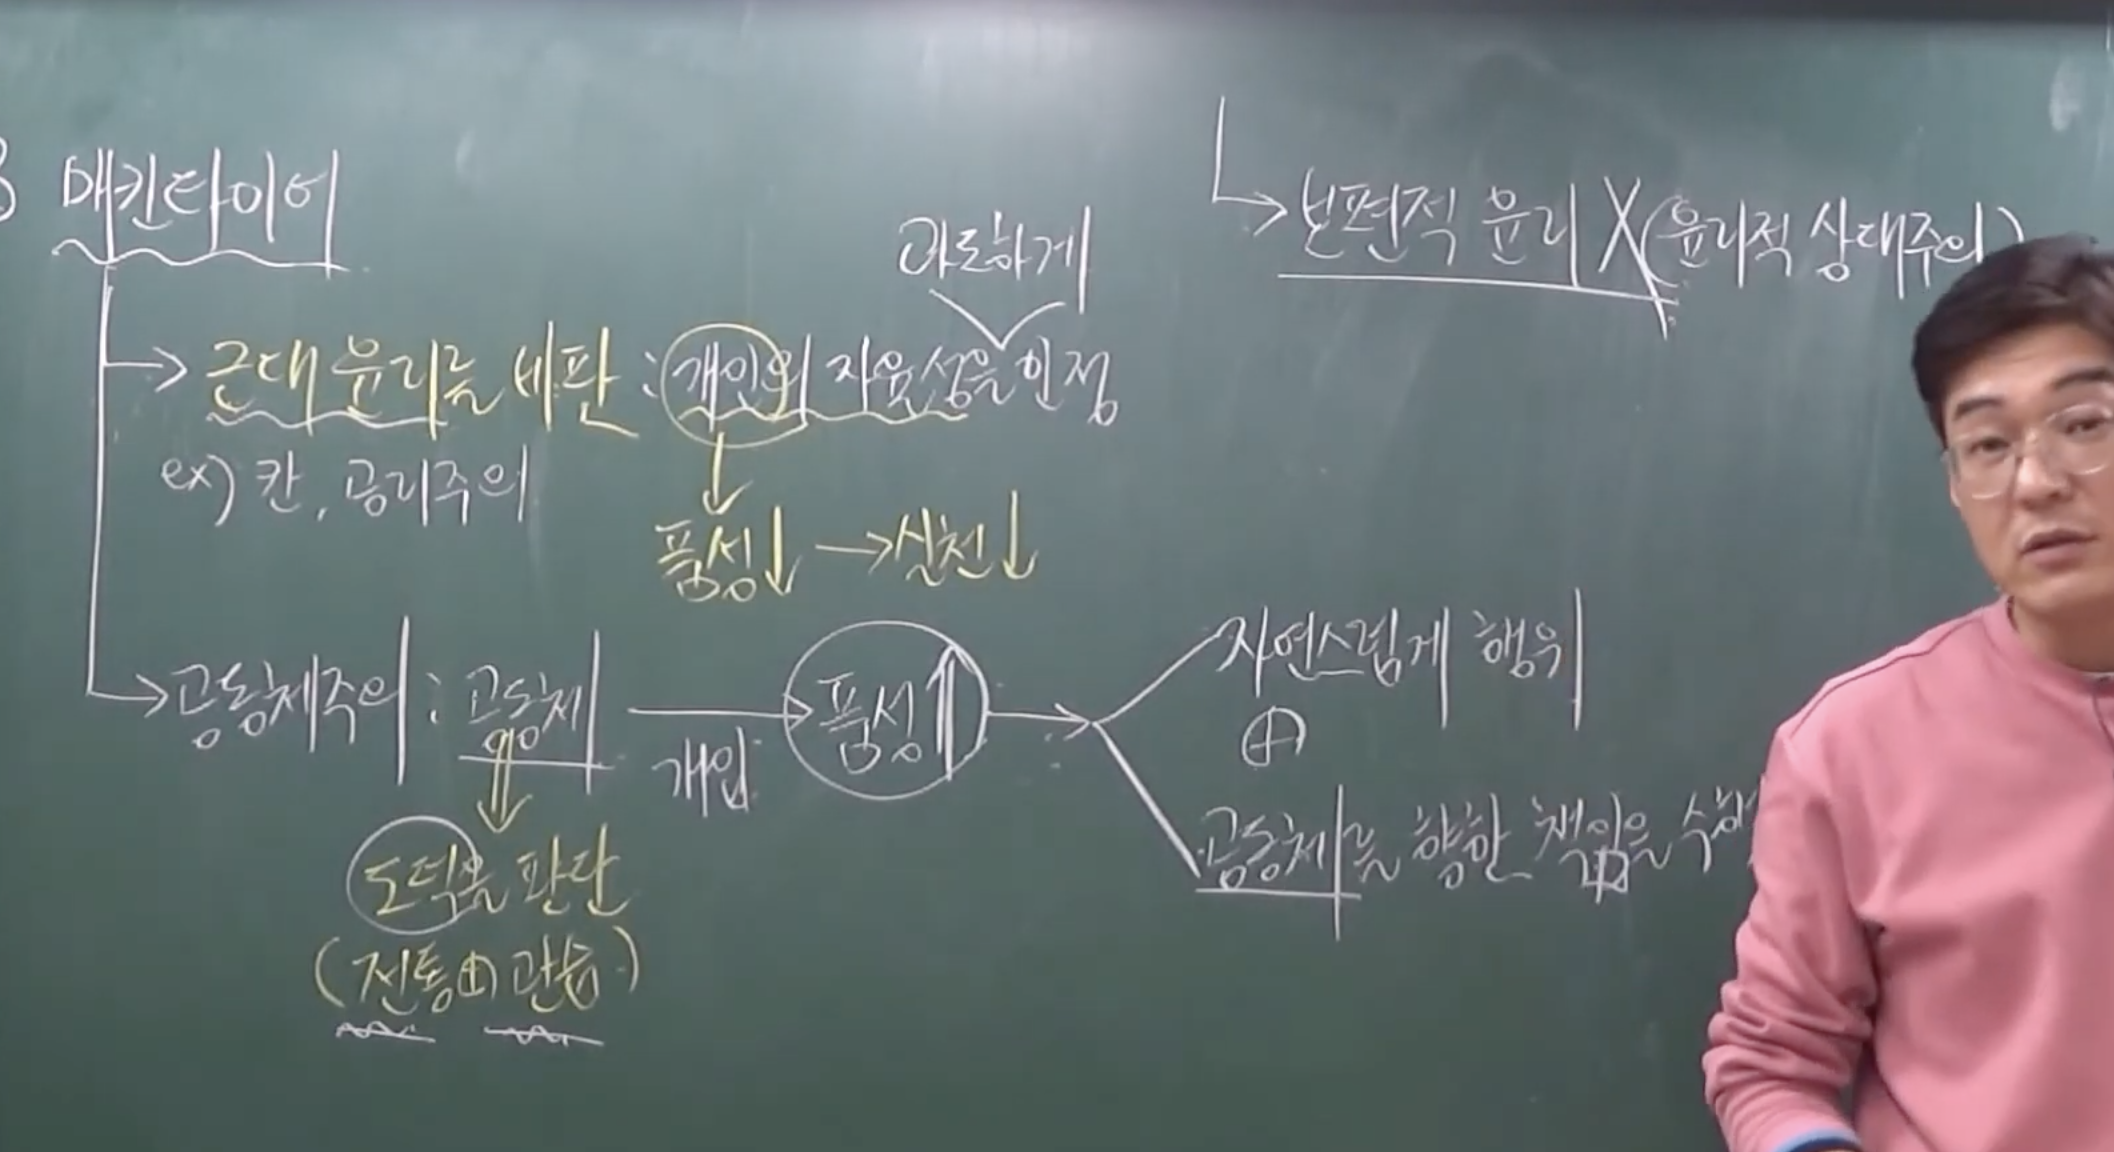 매킨타이어
과도하게
근대 윤리를 비판 : 개인의 자율성을 인정
ex) 칸, 공리주의
품성↓ → 실천↓
공동체주의 : 공동체 → 품성↑ →
개입
자연스럽게 행위
⊕
공동체를 향한 책임을 수행
도덕을 판단
(전통 ⊕ 관습)
→ 보편적 윤리 X (윤리적 상대주의)